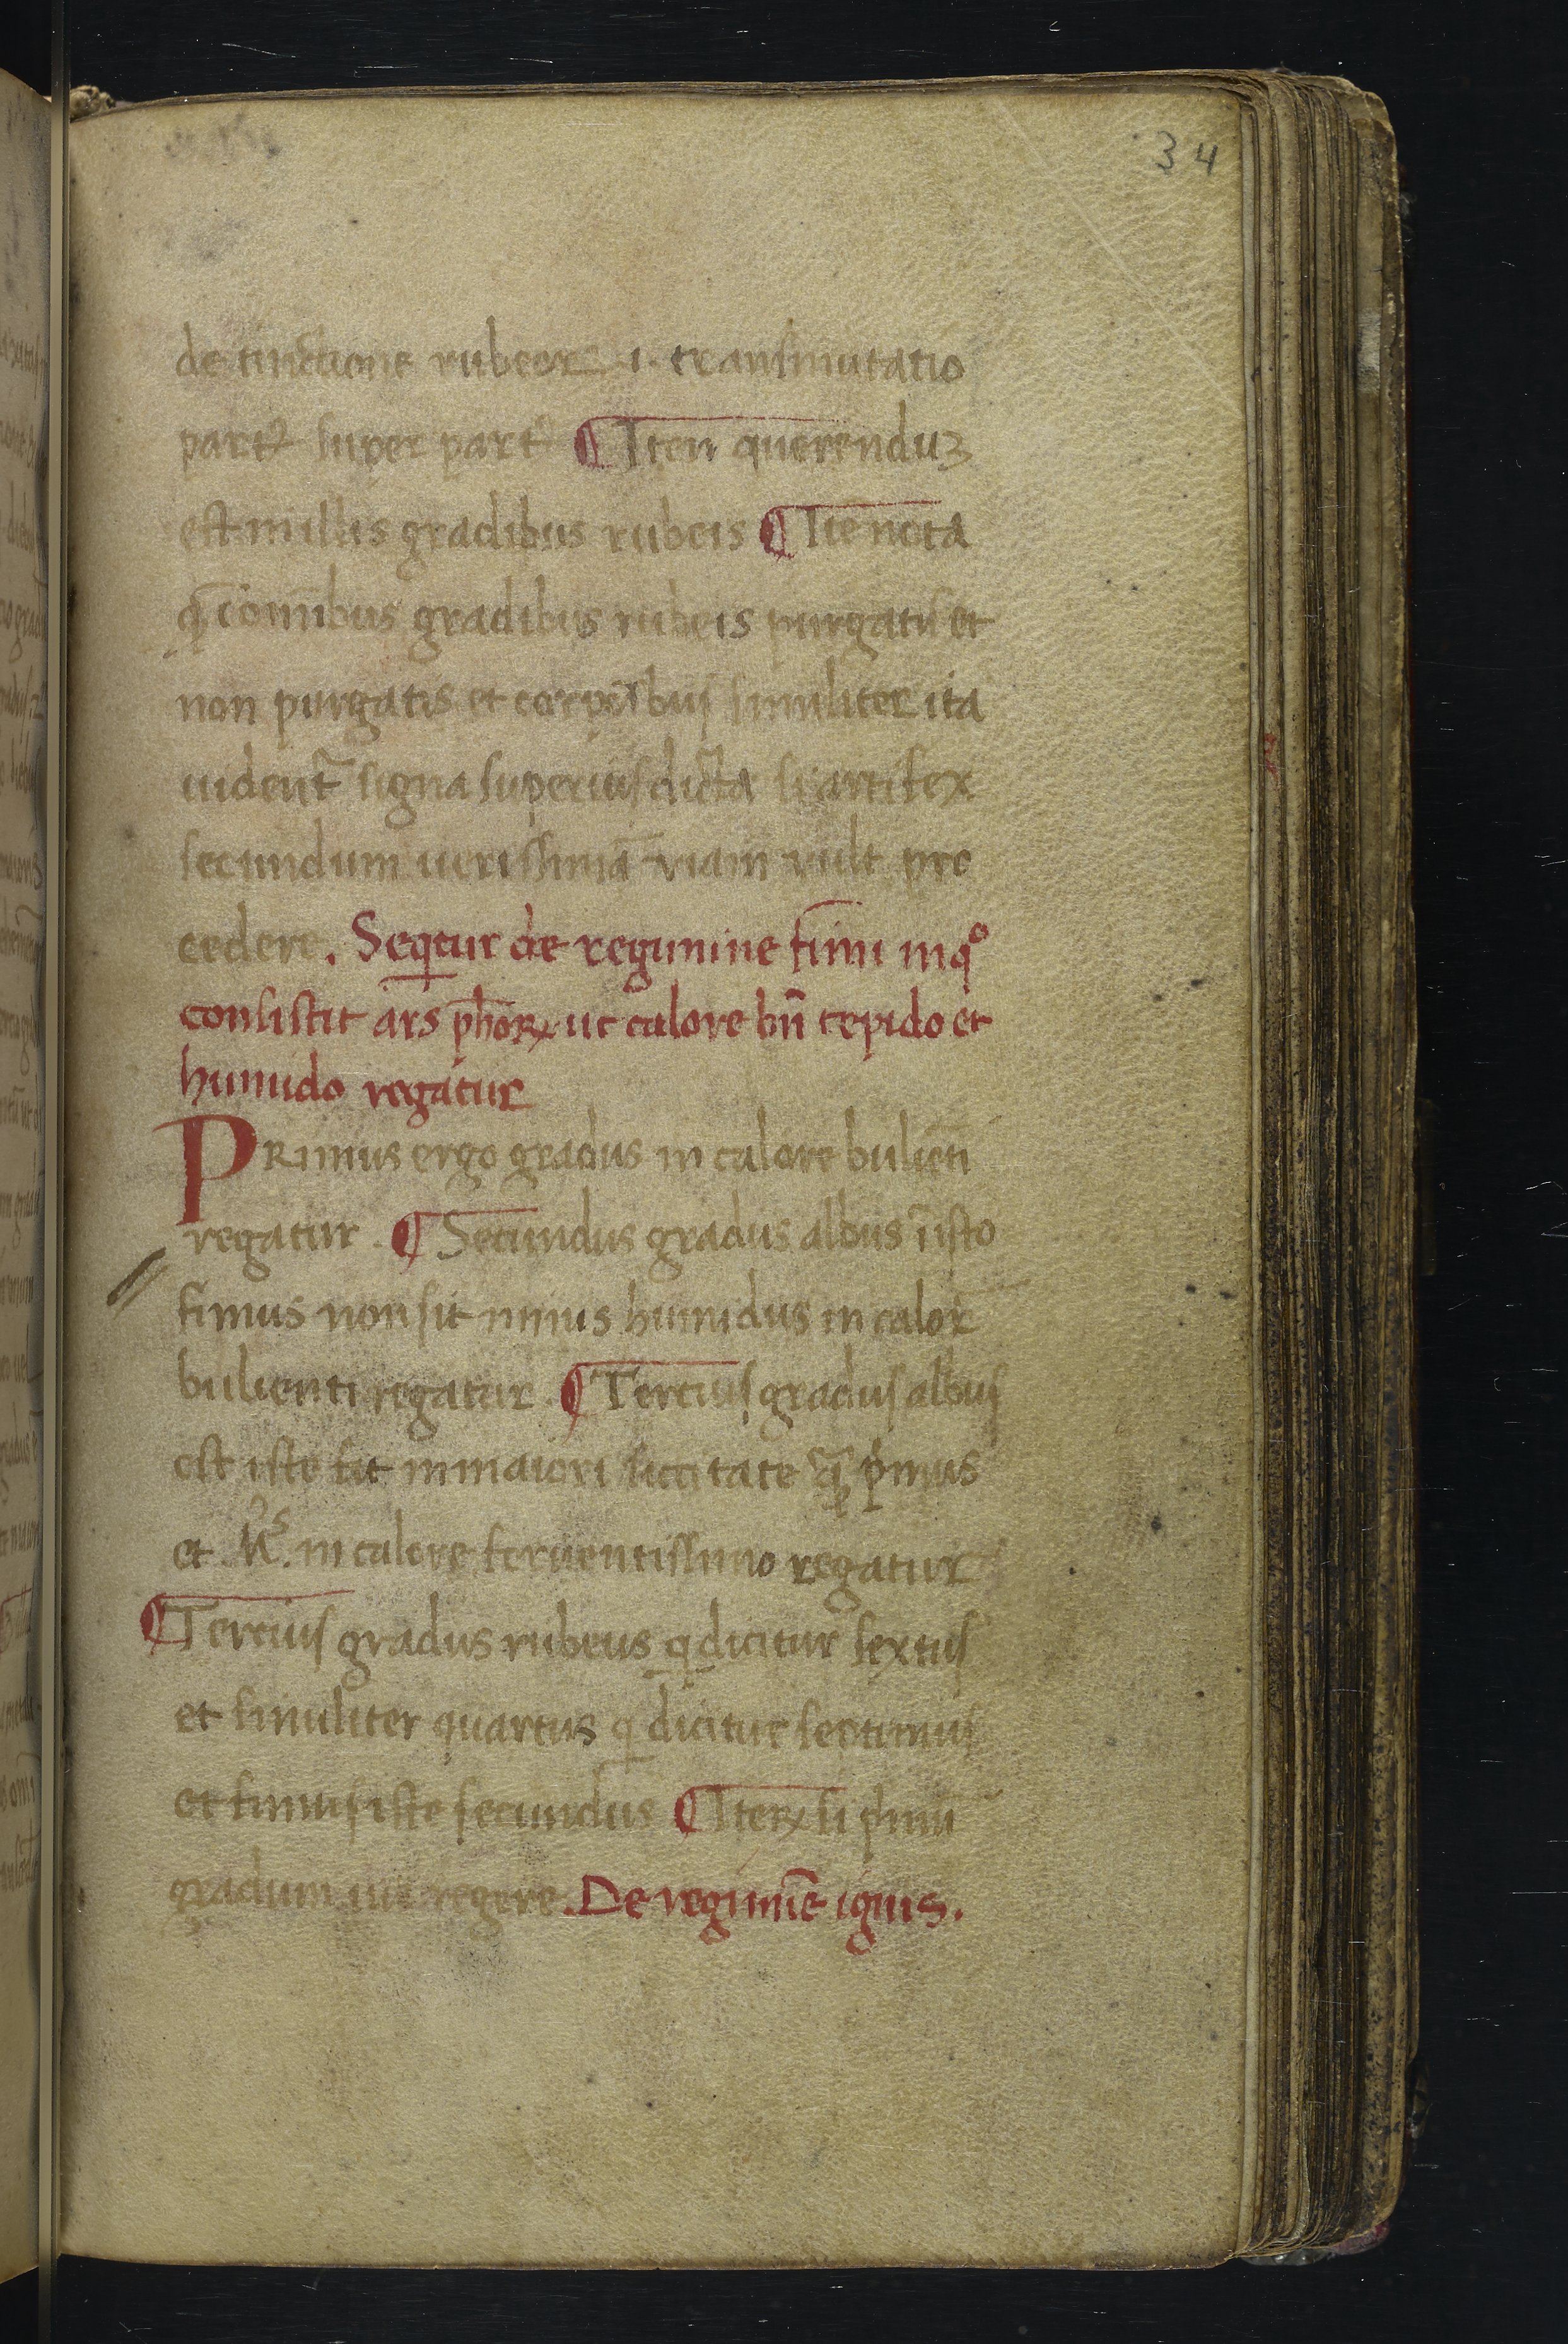 34
de tinctione rubeor .i. transmutatio
part super part ¶ Item querenduꝫ
est in illis gradibus rubeis ¶ Ite nota
ꝙ ī omībus gradibus rubeis purgatis et
non purgatis et corporībus similiter ita
uident᷑ signa superius dicta si artifex
secundum uerissimā viam vult pro
cedere. Seqͥtur de regimine fimi in qͦ
consistit ars pħoꝝ ut calore bn̄ tepido et
humido regatur
PRimus ergo gradus in calore bulienti
regatur. ¶ Secundus gradus albus ī isto
fimus non sit nimis humidus in calor
bulienti regatur. ¶ Tercius gradus albus
est iste fit in maiori siccitate qͣ pͥmus
et in calore feruentissimo regatur
¶ Tercius gradus rubeus q dicitur sextus
et similiter quartus q dicitur septimus
et fimus iste secundus ¶ Iteꝝ si pͥmū
gradum uis regere. De regimīe ignis.